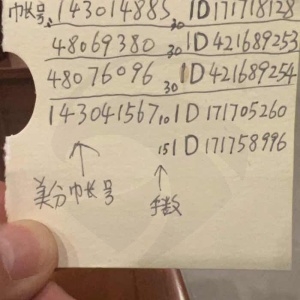 巾长号 143014885 20 ID171718128
48069380 30 ID421689253
48076096 30 ID421689254
143041567 10 ID171705260
15 ID171758996
美分巾长号
手数